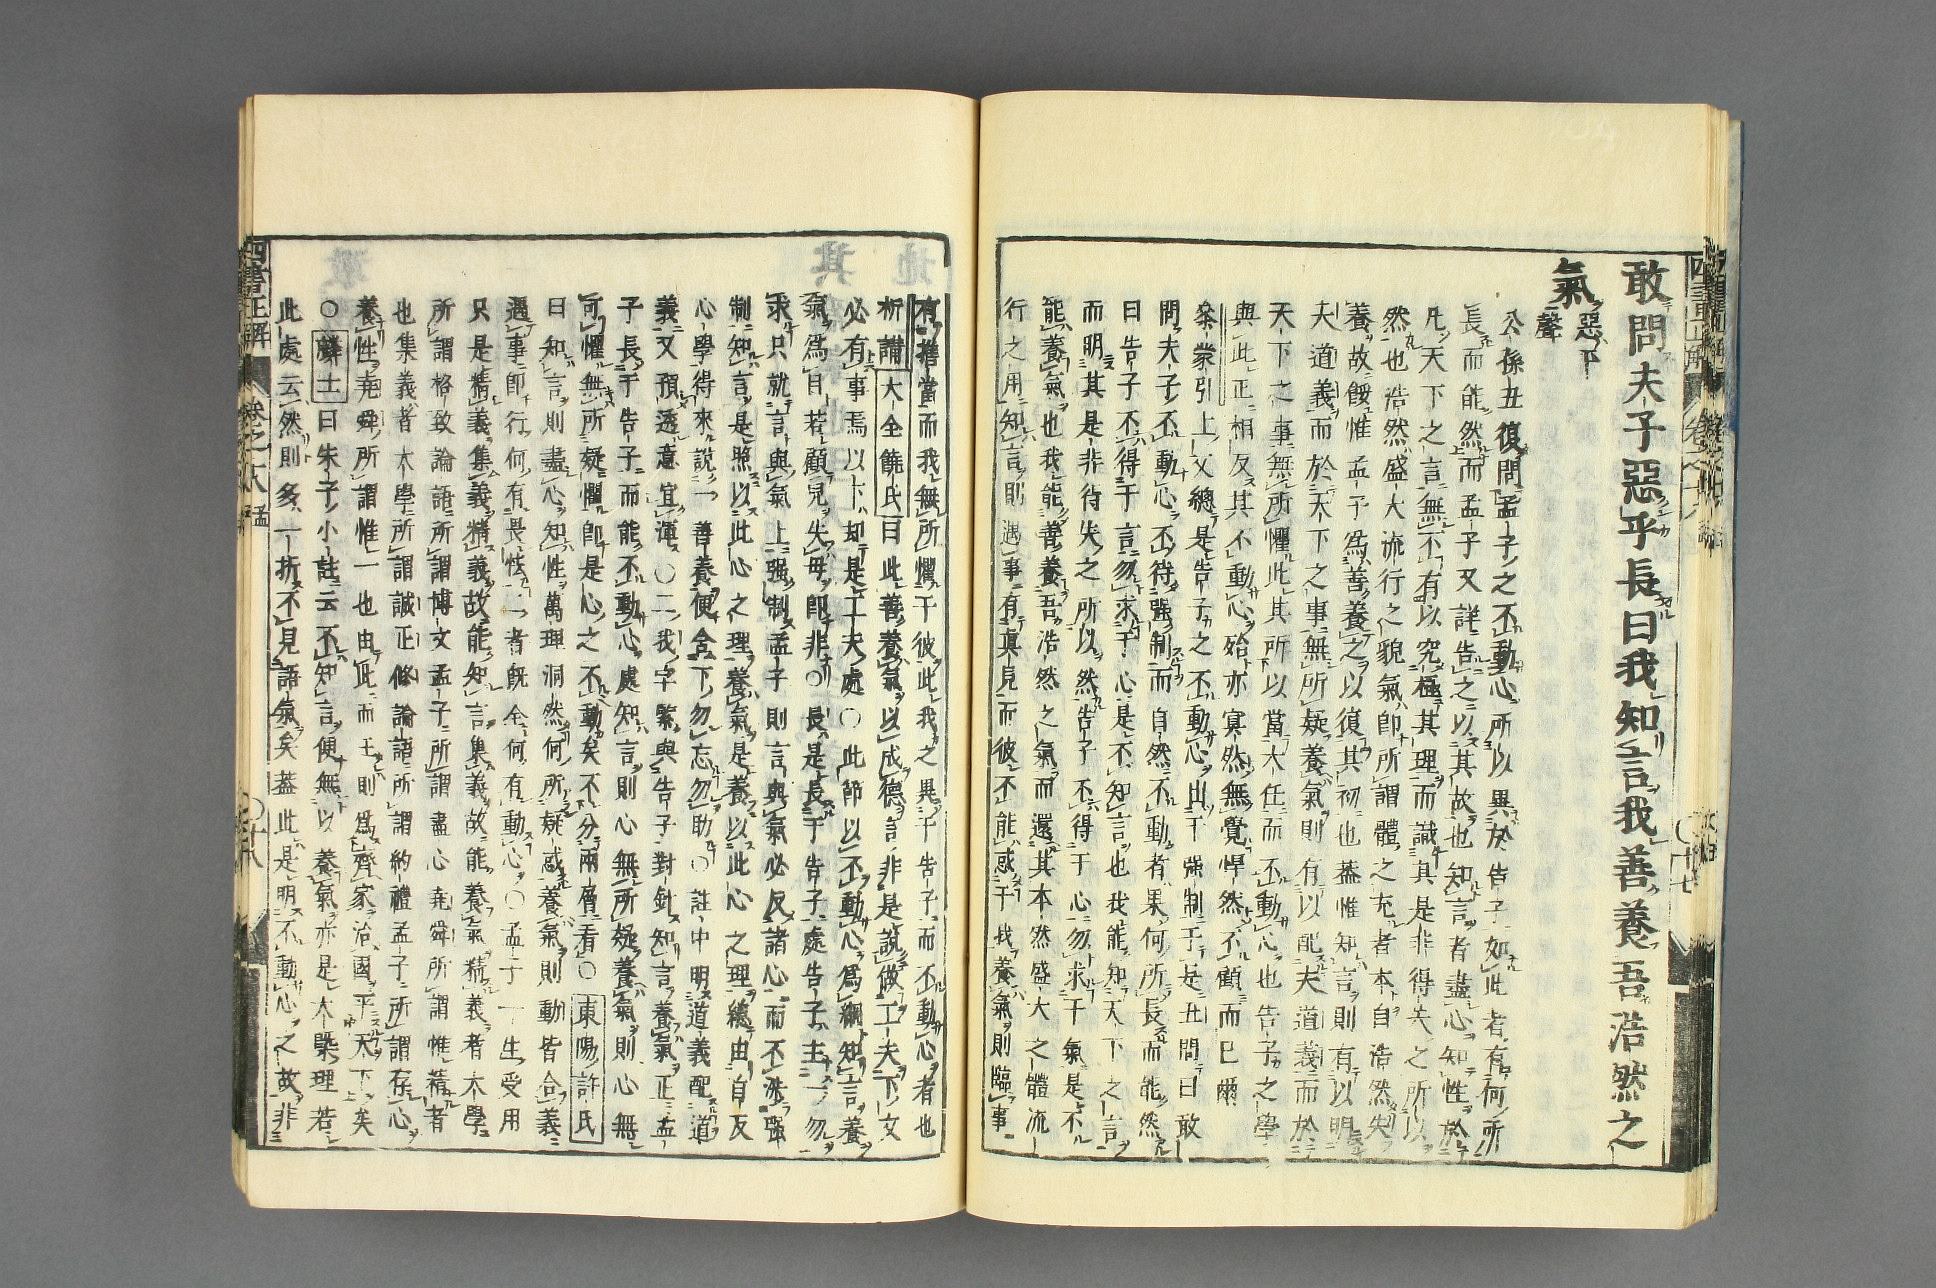 敢問夫子惡乎長曰我知言我善養吾浩然之
氣惡平聲
公孫丑復問孟子之不動心所以異於告子如此者有何所
長而能然而孟子又詳告之以其故也知言者盡心知性於
凡天下之言無不有以究極其理而識其是非得失之所以
然也浩然盛大流行之貌氣卽所謂體之充者本自浩然失
養故餒惟孟子爲善養之以復其初也蓋惟知言則有以明
夫道義而於天下之事無所疑養氣則有以配夫道義而於
天下之事無所懼此其所以當大任而不動心也告子之學
與此正相反其不動心殆亦冥然無覺悍然不顧而已爾
叅蒙引上文總是告子之不動心出于强制于是丑問曰敢
問夫子不動心不待强制而自然不動者果何所長而能然
曰告子不得于言勿求于心是不知言也我能知天下之言
而明其是非得失之所以然告子不得于心勿求于氣是不
能養氣也我能善養吾浩然之氣而還其本然盛大之體流
行之用知言則遇事有眞見而彼不能惑于我養氣則臨事
有擔當而我無所懼于彼此我之異于告子而不動心者也
析講大全饒氏曰此善養氣以成德言非是說做工夫下文
必有事焉以下却是工夫處○此節以不動心爲綱知言養
氣爲目若顧見失母卽非○長是長于告子處告子主一勿
求只就言與氣上强制孟子則言與氣必反諸心而不涉强
制知言是照以此心之理養氣是養以此心之理總由自反
心學得來說一善養便含下勿忘勿助○註中明道義配道
義又預透意宜渾○二我字緊與告子對針知言養氣正孟
子長于告子而能不動心處知言則心無所疑養氣則心無
可懼無所疑懼卽是心之不動矣不分兩層看○東陽許氏
曰知言則盡心知性萬理洞然何所疑惑養氣則動皆合義
遇事卽行何有畏怯二者旣全何有動心○孟子一生受用
只是精義集義精義故能知言集義故能養氣精義者大學
所謂格致論語所謂博文孟子所謂盡心堯舜所謂惟精者
也集義者大學所謂誠正修論語所謂約禮孟子所謂存心
養性堯舜所謂惟一也由此而王則爲齊家治國平天下矣
○麟士曰朱子小註云不知言便無以養氣亦是大槩理若
此處云然則多一折不見語氣矣蓋此是明不動心之故非
四書正解
卷之六
孟
○十八
四書正解
卷之六
○十七